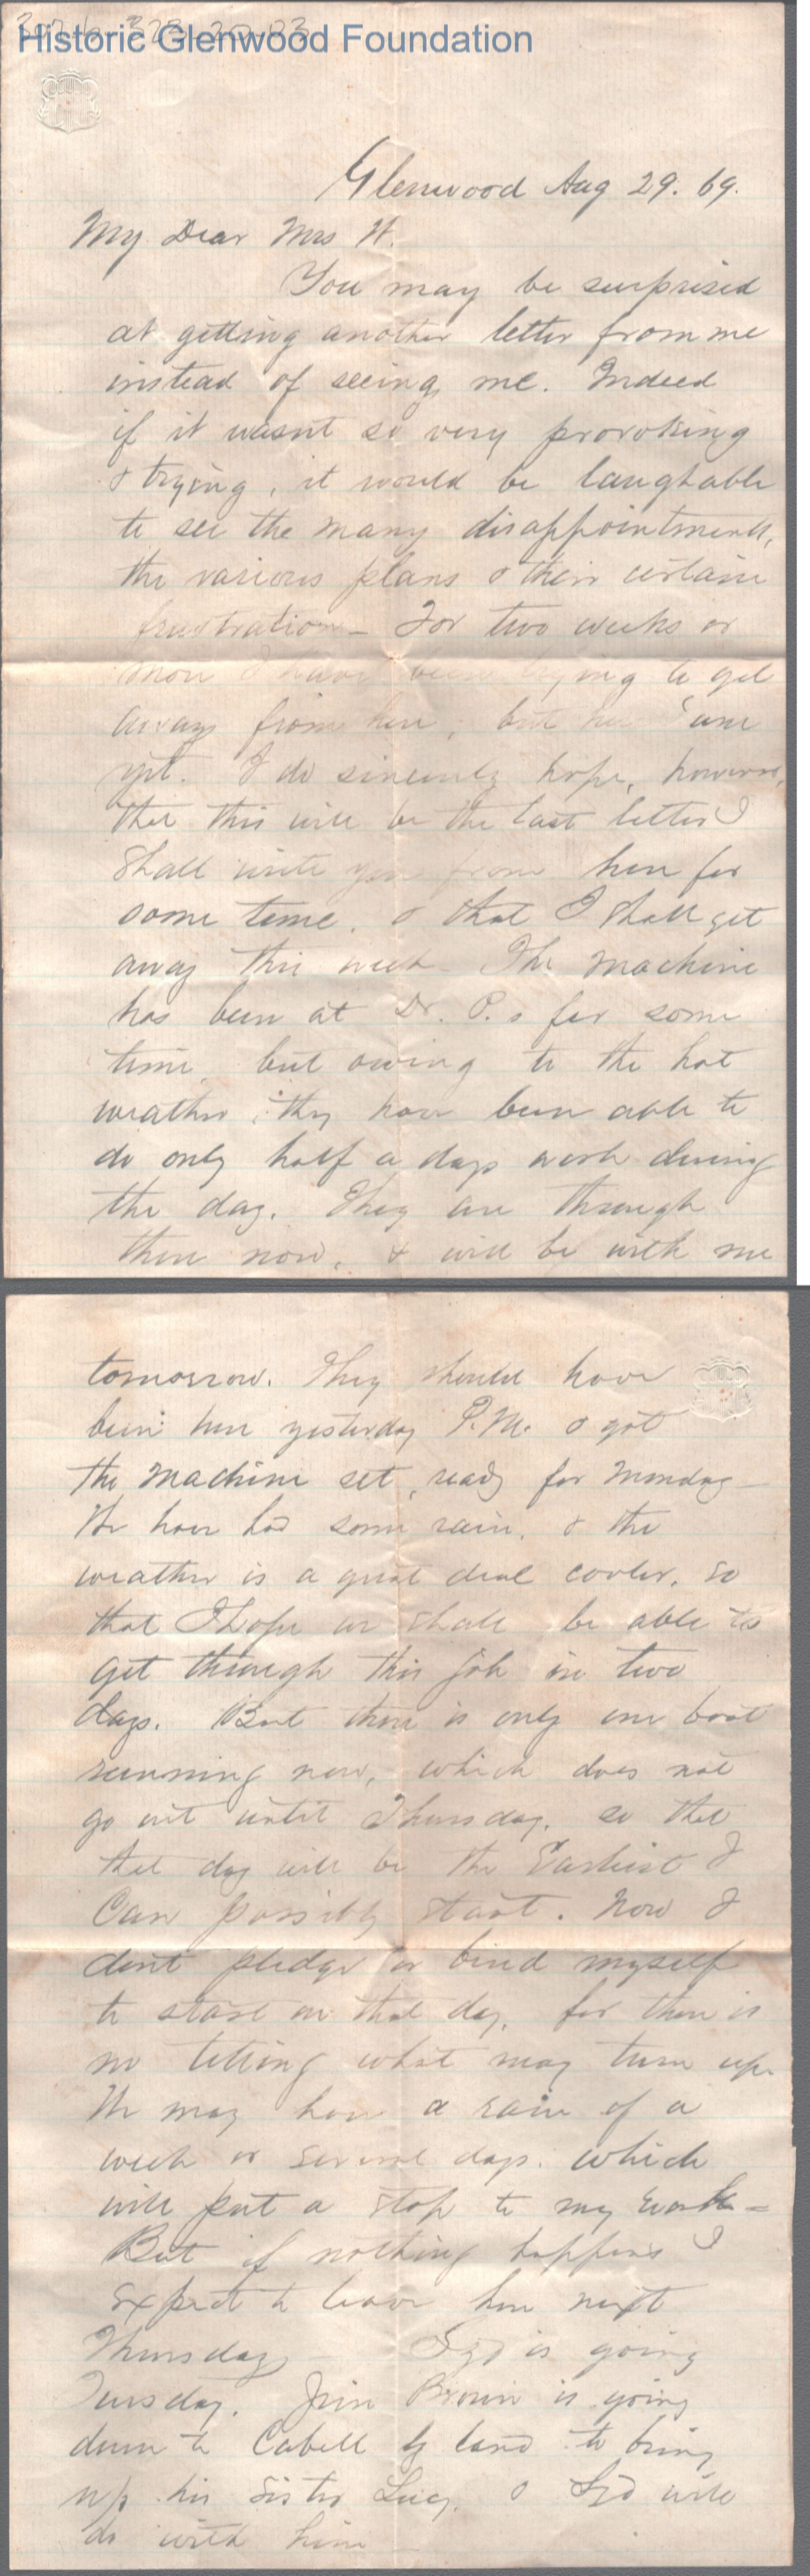 Historic Glenwood Foundation
Glenwood Aug 29. 69.
My Dear Mrs W.
You may be surprised
at getting another letter from me
instead of seeing me. Indeed
if it wasnt so very provoking
& trying, it would be laughable
to see the many disappointments,
the various plans & their certain
frustration _ For two weeks or
more I have been trying to get
away from here, but here I am
yet. I do sincerely hope, however,
that this will be the last letter I
shall write you from here for
some time, & that I shall get
away this week _ The machine
has been at Dr. P.s for some
time, but owing to the hot
weather, they have been able to
do only half a days work during
the day. They are through
there now, & will be with me
tomorrow. They should have
been here yesterday P.M. & got
the machine set, ready for Monday _
We have had some rain, & the
weather is a great deal cooler, so
that I hope we shall be able to
get through this job in two
days. But there is only one boat
running now, which does not
go out until Thursday, so that
that day will be the Earliest I
Can possibly start. Now I
dont pledge or bind myself
to start on that day, for there is
no telling what may turn up.
We may have a rain of a
week or several days. which
will put a stop to my work _
But if nothing happens I
expect to leave here next
Thursday is going
Tuesday. Jim Brown is going
down to Cabell by land to bring
up his sister Lucy. & will
go with him